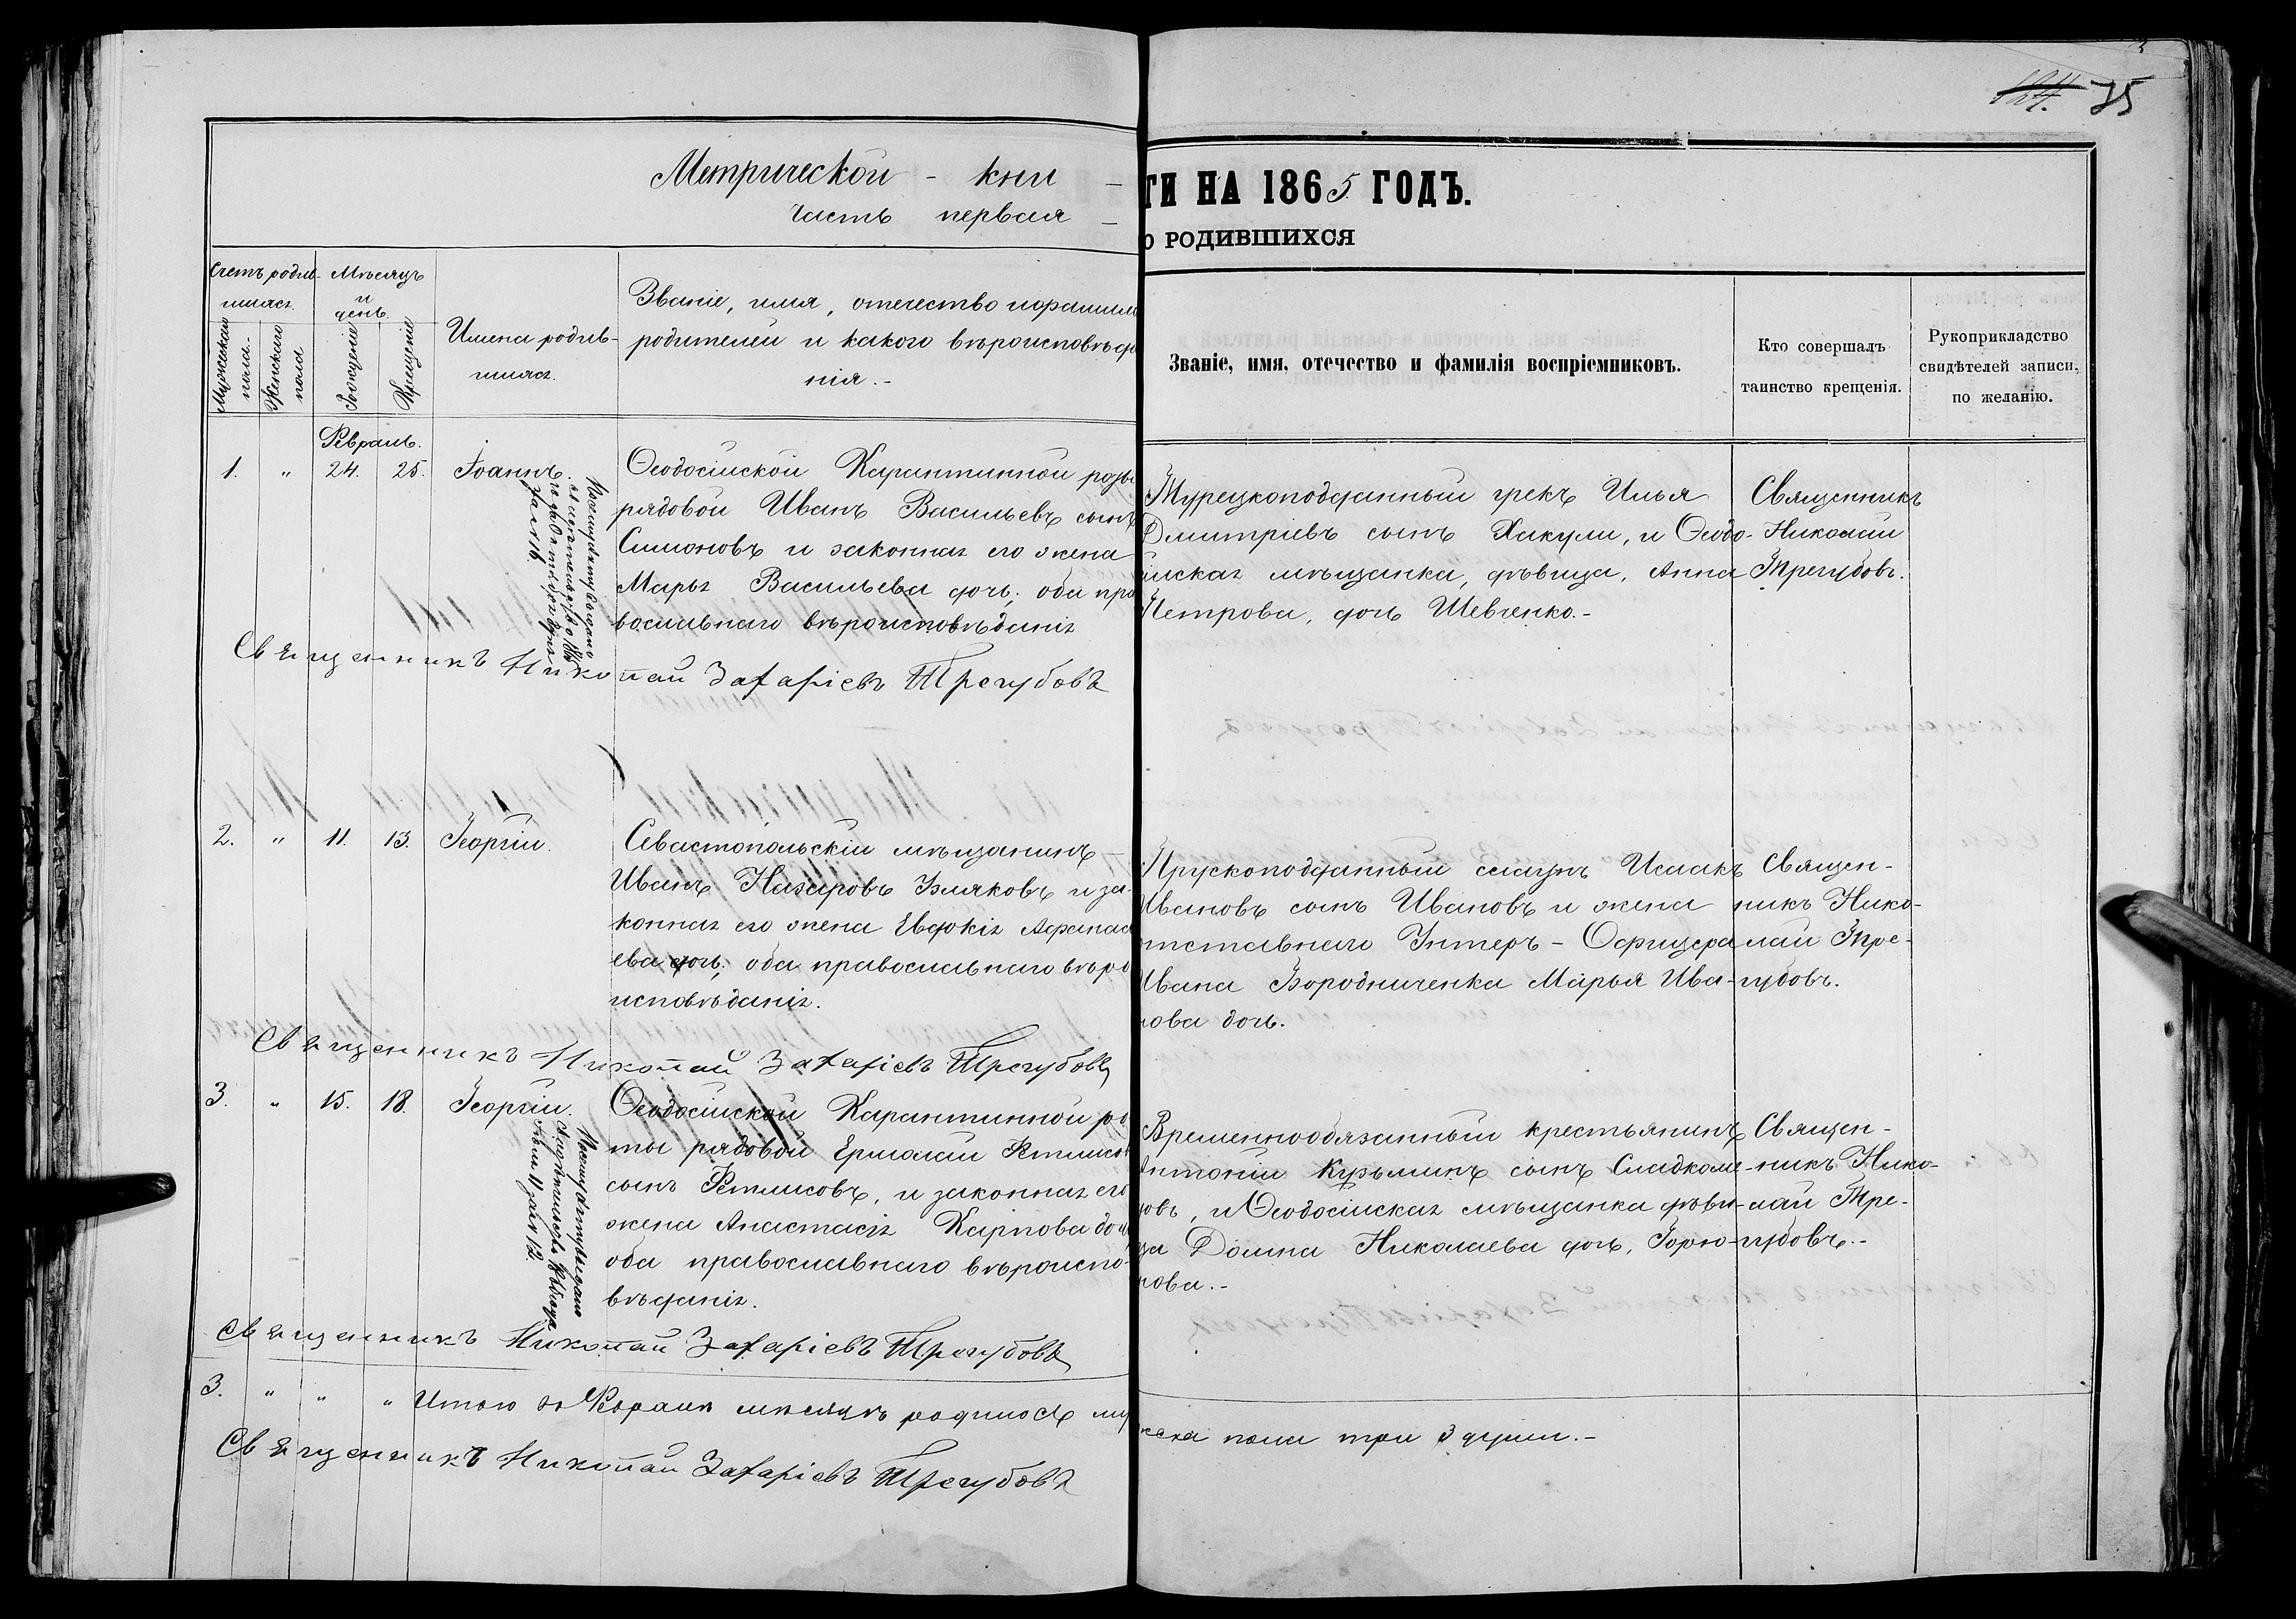 124. 75
Метрической - кни -
ГИ НА 1865 ГОДЪ.
часть первая -
О РОДИВШИХСЯ
Счетъ родив-
шихся.
Мѣсяцъ
и
день.
Мужескаго
пола.
Женскаго
пола
Рожденіе
Крещеніе
Имена родив-
шихся.
Званіе, имя, отечество и фамилія
родителей и какого вѣроисповѣда
нія.-
Званіе, имя, отечество и фамилія воспріемниковъ.
Кто совершалъ
таинство крещенія.
Рукоприкладство
свидѣтелей записи,
по желанію.
Февраль.
1. " 24. 25. Іоаннъ.
Ѳеодосійской Карантинной роты
рядовой Иванъ Васильевъ сынъ
Симоновъ и законная его жена
Марья Васильева дочь, оба пра
вославнаго вѣроисповѣданія
Турецкоподданный грекъ Илья
Дмитріевъ сынъ Хакули, и Ѳеодо-
сійская мѣщанка, дѣвица, Анна
Петрова, дочь Шевченко.-
Священникъ
Николай
Трегубовъ.
Священникъ Николай Захаріевъ Трегубовъ
2. " 11. 13. Георгій.
Севастопольскій мѣщанинъ -
Иванъ Назаровъ и за-
конная его жена Евдокія Афанась
ева дочь. оба православнаго вѣро
исповѣданія.
Прускоподданный Исаакъ
Ивановъ сынъ Ивановъ и жена
отставнаго Унтеръ-Офицера
Ивана Бородниченка Марья Ива-
нова дочь.
Священ-
никъ Нико-
лай Тре-
губовъ.
Священникъ Николай Захаріевъ Трегубовъ
3. " 15. 18. Георгій.
Ѳеодосійской Карантинной ро
ты рядовой Ермолай
сынъ и законная его
жена Анастасія Карпова дочь
оба православнаго вѣроиспо-
вѣданія.
Временнообязанный крестьянинъ
Антоній Кузьминъ сынъ
и Ѳеодосійская мѣщанка дѣви-
ца Домна Николаева дочь, Горю-
нова.-
Священ-
никъ Нико-
лай Тре-
губовъ.-
Священникъ Николай Захаріевъ Трегубовъ
3. " " " Итого въ Февралѣ мѣсяцѣ родилось му
жеска пола три 3 души.-
Священникъ Николай Захаріевъ Трегубовъ